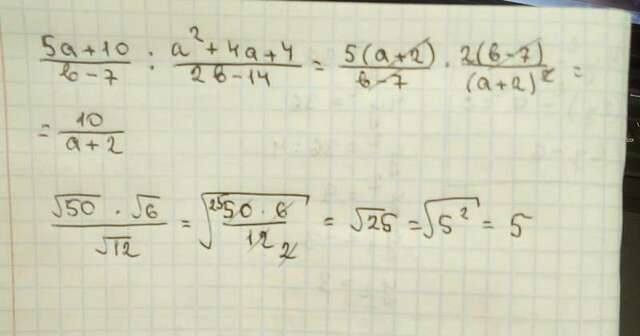 (5a+10)/(b-7) : (a²+4a+4)/(2b-14) = 5(a+2)/(b-7) · 2(b-7)/(a+2)² =
= 10/(a+2)
(√50 · √6)/√12 = √((²⁵50 · 6)/(12 2)) = √25 = √5² = 5